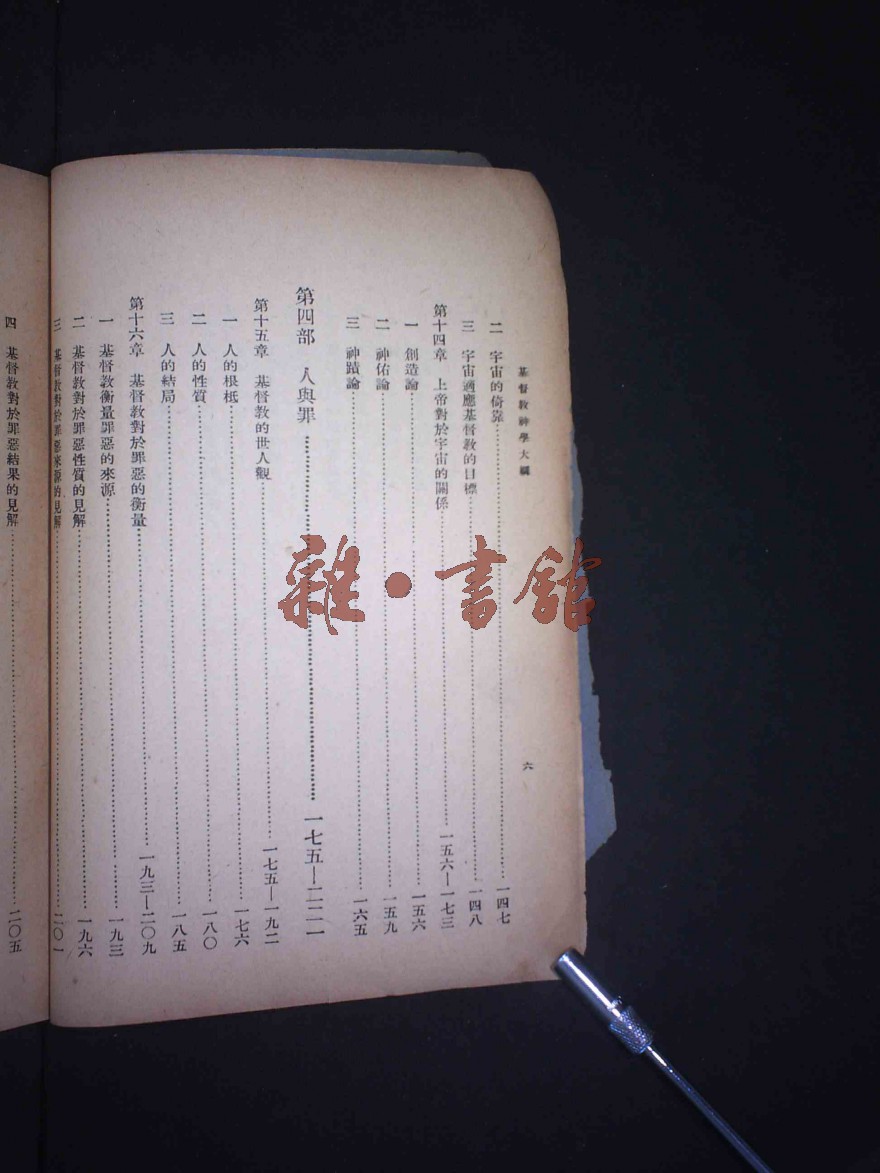 基督教神學大綱
六
二 宇宙的倚靠……一四七
三 宇宙適應基督教的目標……一四八
第十四章 上帝對於宇宙的關係……一五六—一七三
一 創造論……一五六
二 神佑論……一五九
三 神蹟論……一六五
第四部 人與罪……一七五—二二一
第十五章 基督教的世人觀……一七五—一九二
一 人的根柢……一七六
二 人的性質……一八〇
三 人的結局……一八五
第十六章 基督教對於罪惡的衡量……一九三—二〇九
一 基督教衡量罪惡的來源……一九三
二 基督教對於罪惡性質的見解……一九六
三 基督教對於罪惡來源的見解……二〇一
四 基督教對於罪惡結果的見解……二〇五
雜·書館